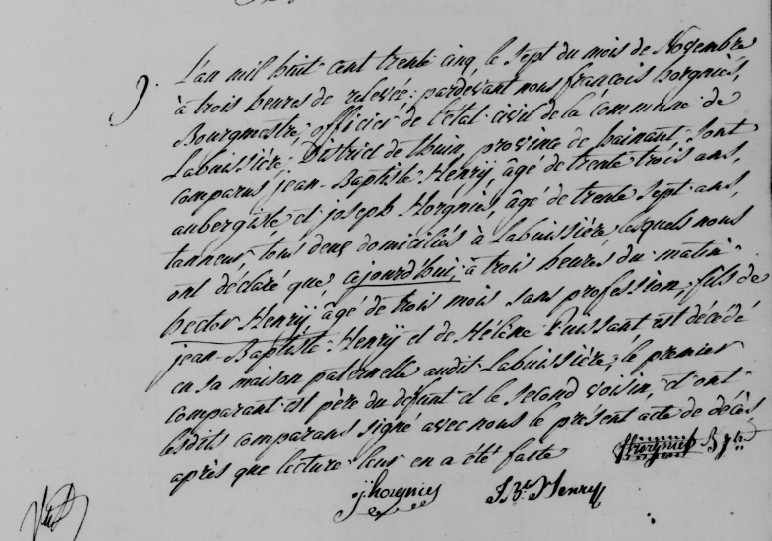 L'an mil huit cent trente cinq le sept du mois de Novembre
à trois heures de relevée; pardevant nous françois horgniés,
Bourgmestre, officier de l'état civil de la Commune de
Labuissière, District de thuin, province de hainaut; sont
Comparus jean-Baptiste Henrÿ, âgé de trente trois ans,
aubergiste et joseph Horgniés, âgé de trente sept ans,
tanneur, tous deux domiciliés à Labuissière lesquels nous
ont déclaré que, cejourd'hui, à trois heures du matin
hector Henrÿ âgé de trois mois sans profession, fils de
jean-Baptiste Henrÿ et de Hélène Puissant est décédé
en sa maison paternelle audit Labuissière, le premier
comparant est père du défunt et le second voisin, et ont
lesdits comparans signé avec nous le présent acte de décès
après que lecture leur en a été faite
fhorgnies
j:horgnies J Bte Henry